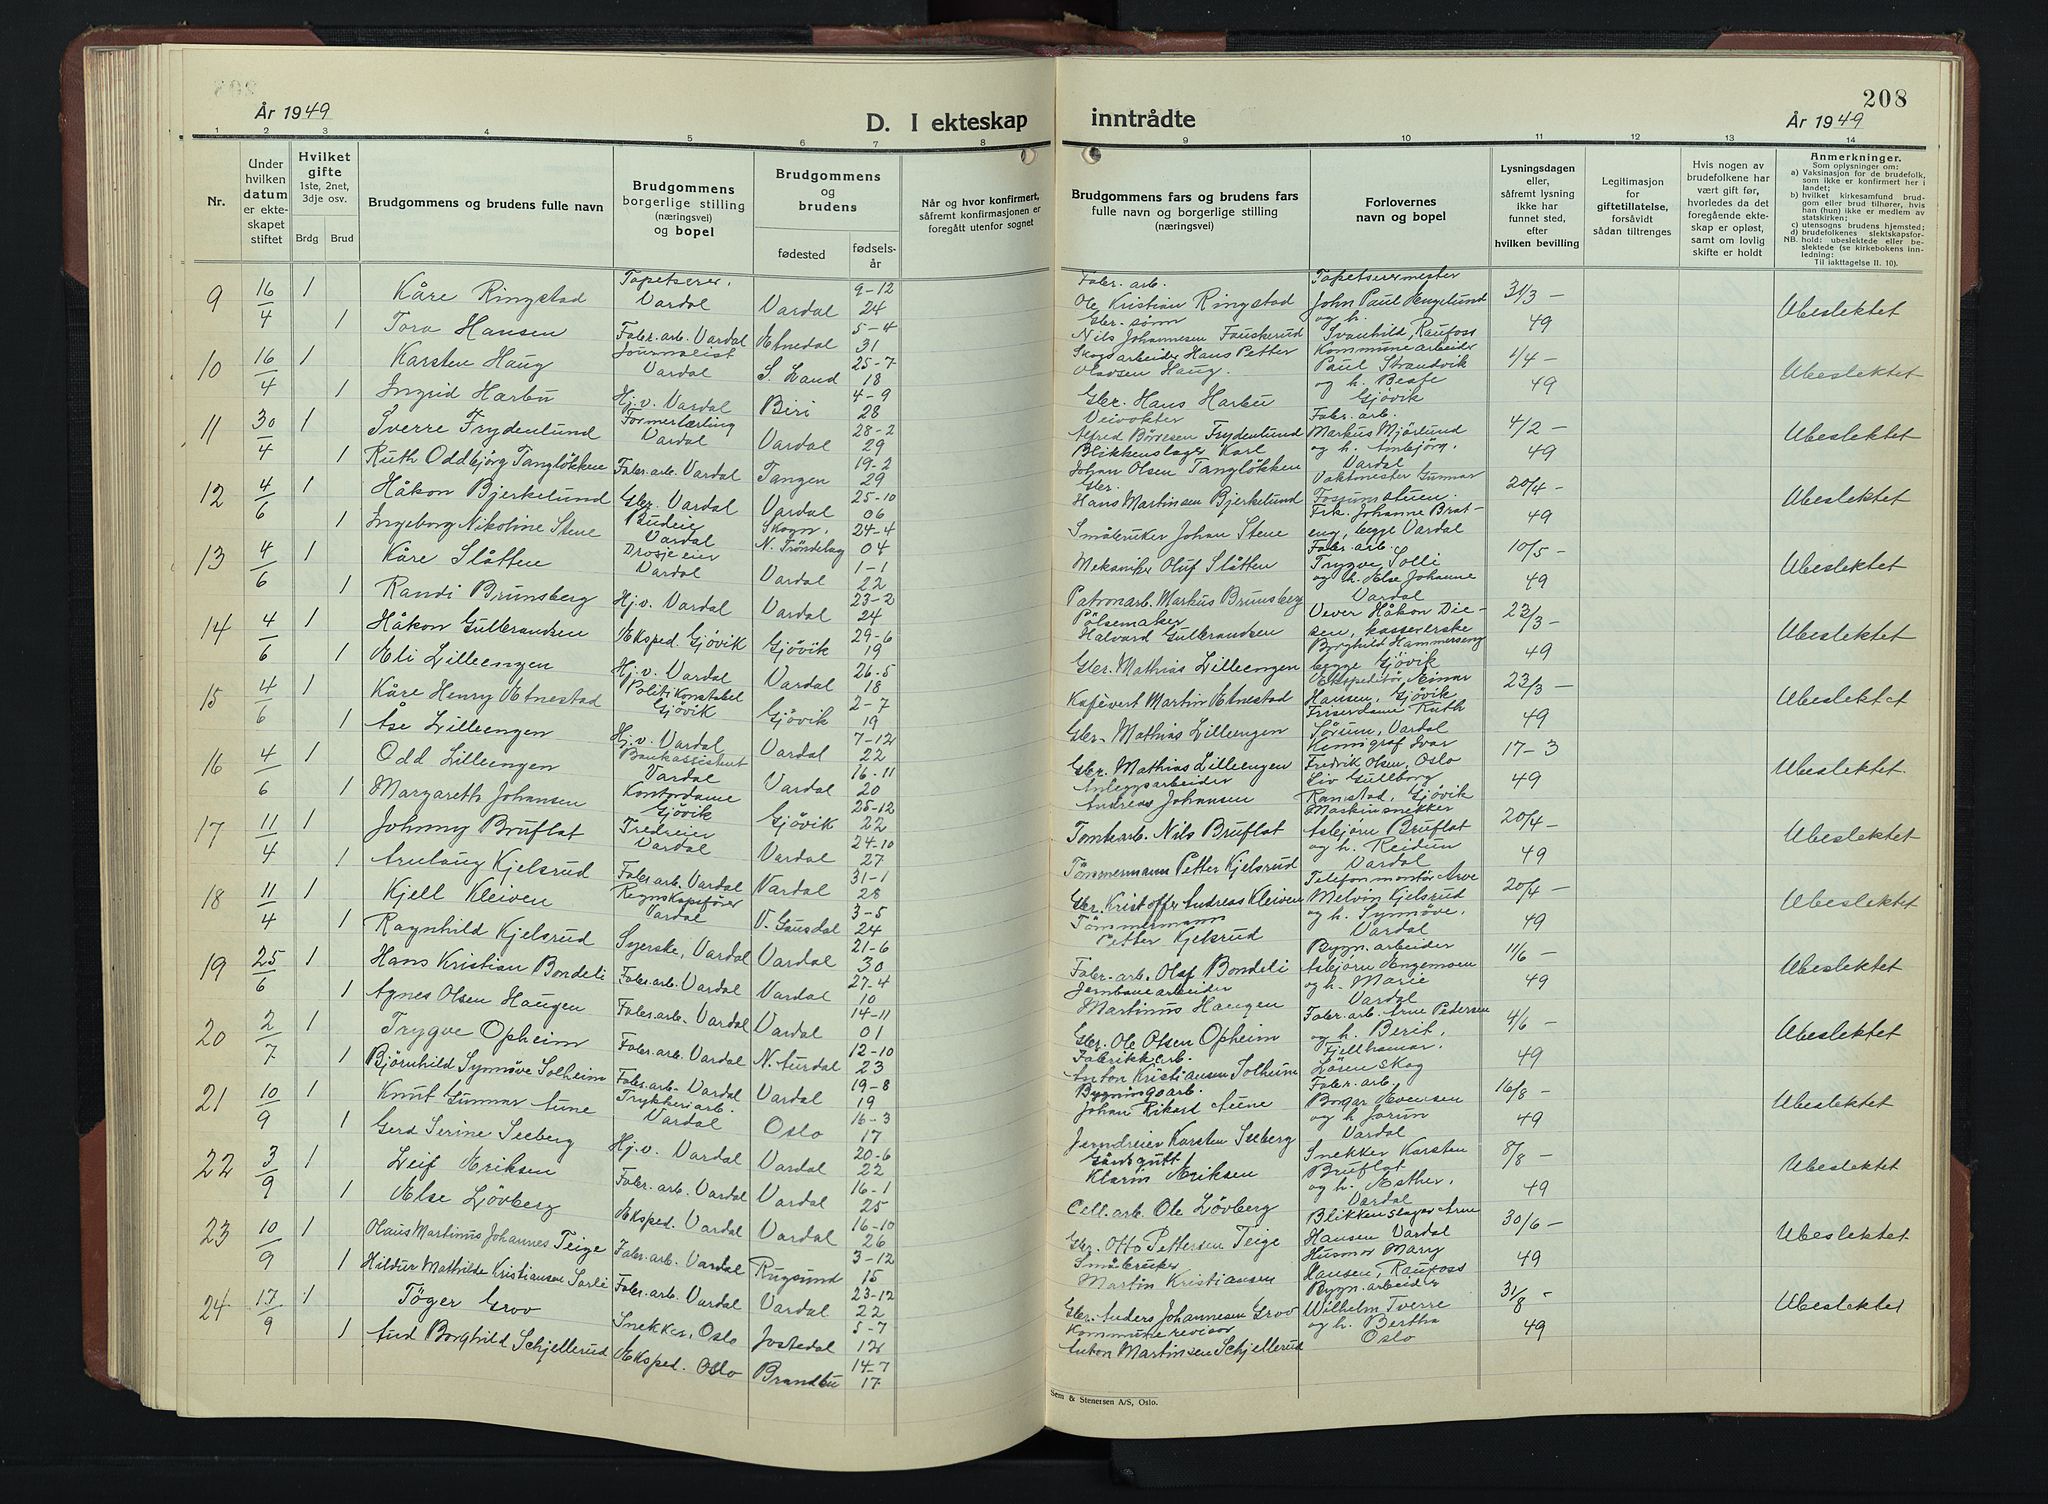 208
År 1949
D. I ekteskap inntrådte
År 1949
1 2 3 4 5 6 7 8 9 10 11 12 13 14
Nr.
Under hvilken datum er ekteskapet stiftet
Hvilket gifte 1ste, 2net, 3dje osv.
Brdg Brud
Brudgommens og brudens fulle navn
Brudgommens borgerlige stilling (næringsvei) og bopel
Brudgommens og brudens
fødested
fødselsår
Når og hvor konfirmert, såfremt konfirmasjonen er foregått utenfor sognet
Brudgommens fars og brudens fars fulle navn og borgerlige stilling (næringsvei)
Forlovernes navn og bopel
Lysningsdagen eller, såfremt lysning ikke har funnet sted, efter hvilken bevilling
Legitimasjon for giftetillatelse, forsåvidt sådan tiltrenges
Hvis nogen av brudefolkene har vært gift før, hvorledes da det foregående ekteskap er opløst, samt om lovlig skifte er holdt
Anmerkninger.
Som oplysninger om:
a) Vaksinasjon for de brudefolk, som ikke er konfirmert her i landet;
b) hvilket kirkesamfund brudgom eller brud tilhører, hvis han (hun) ikke er medlem av statskirken;
c) utensogns brudens hjemsted;
d) brudefolkenes slektskapsforhold: ubeslektede eller beslektede (se kirkebokens innledning:
NB.
Til iakttagelse II. 10).
9 16/4 1 Kåre Ringstad Tapetserer. Vardal Vardal 9-12 24 Fabr. arb. Ole Kristian Ringstad Tapetserermester John Paul Hengelund og h. 31/3 - 49 Ubeslektet
1 Tora Hansen Fabr. arb. Vardal Etnedal 5-4 31 Gbr. sønn Nils Johannesen Fauskerud Svanhild, Raufoss
10 16/4 1 Karsten Haug Journalist Vardal S. Land 25-7 18 Skogsarbeider Hans Petter Olavsen Haug. Kommunearbeider Paul Strandvik 1/4 - 49 Ubeslektet
1 Ingrid Harbu Hj. v. Vardal Biri 4-9 28 Gbr. Hans Harbu og h. Beate Gjøvik
11 30/4 1 Sverre Frydenlund Formerlærling Vardal Vardal 28-2 29 Veivokter Alfred Børresen Frydenlund Fabr. arb. Markus Mjörlund 4/2 - 49 Ubeslektet
1 Ruth Oddbjörg Tangløkken Fabr. arb. Vardal Tangen 19-2 29 Blikkenslager Karl Johan Olsen Tangløkken og h. Ambjörg. Vardal
12 4/6 1 Håkon Bjerkelund Gbr. Vardal Vardal 25-10 06 Gbr. Hans Martinsen Bjerkelund Vaktmester Gunnar Fossumstuen. 20/4 - 49 Ubeslektet
1 Ingeborg Nikoline Stene Budeie Vardal Skogn. N. Tröndelag 24-4 04 Småbruker Johan Stene Frk. Johanne Brateng, begge Vardal
13 4/6 1 Kåre Slåtten Drosjeeier Vardal Vardal 1-1 22 Mekaniker Oluf Slåtten Fabr. arb. Trygve Solli 10/5 - 49 Ubeslektet
1 Randi Brunsberg Hj. v. Vardal Vardal 23-2 24 Patronarb. Markus Brunsberg og h. Else Johanne Vardal
14 4/6 1 Håkon Gulbrandsen Eksped. Gjövik Gjövik 29-6 19 Pölsemaker Halvard Gulbrandsen Vever Håkon Diesen, kassererske 23/3 - 49 Ubeslektet
1 Eli Lilleengen Hj. v. Vardal Vardal 26-5 18 Gbr. Mathias Lilleengen Borghild Hammerseng begge Gjövik
15 4/6 1 Kåre Henry Etnestad Politikonstabel Gjövik Gjövik 2-7 19 Kafévert Martin Etnestad Ekspeditör Einar Hansen, Gjövik 23/3 - 49 Ubeslektet
1 Åse Lilleengen Hj. v. Vardal Vardal 7-12 22 Gbr. Mathias Lilleengen Friserdame Ruth Sörum, Vardal
16 4/6 1 Odd Lilleengen Bankassistent Vardal Vardal 16-11 20 Gbr. Mathias Lilleengen Kemigraf Ivar Fredrik Olsen, Oslo 17-3 49 Ubeslektet.
1 Margareth Johansen Kontordame Gjövik Gjövik 25-12 22 Anleggsarbeider Andreas Johansen Liv Gullborg Ramstad, Gjövik
17 11/4 1 Johnny Bruflat Fredreier Vardal Vardal 24-10 27 Tomtearb. Nils Bruflat Maskinsnekker Asbjørn Bruflat 20/4 - 49 Ubeslektet
1 Arnlaug Kjelsrud Fabr. arb. Vardal Vardal 31-1 28 Tömmermann Petter Kjelsrud og h. Reidun Vardal
18 11/4 1 Kjell Kleiven Regnskapsfører Vardal V. Gausdal 3-5 24 Gbr. Kristoffer Andreas Kleiven Telefonmontör Arve Melvin Kjelsrud 20/4 - 49 Ubeslektet
1 Ragnhild Kjelsrud Syerske, Vardal Vardal 21-6 30 Tömmermann Petter Kjelsrud og h. Synnöve. Vardal
19 25/6 1 Hans Kristian Bondeli Fabr. arb. Vardal Vardal 27-4 10 Fabr. arb. Olaf Bondeli Bygn. arbeider Asbjørn Engemoen 11/6 - 49 Ubeslektet
1 Agnes Olsen Haugen Fabr. arb. Vardal Vardal 14-11 01 Jernbanearbeider Martinus Haugen og h. Marie Vardal
20 2/7 1 Trygve Opheim Fabr. arb. Vardal N. Aurdal 12-10 23 Gbr. Ole Olsen Opheim Fabr. arb. Arne Pedersen og h. Berit, 4/6 - 49 Ubeslektet
1 Björnhild Synnöve Solheim Fabr. arb. Vardal Vardal 19-8 19 Fabrikkarb. Anton Kristiansen Solheim Fjellhamar, Lörenskog
21 10/9 1 Knut Gunnar Aune Trykkeriarb. Vardal Oslo 16-3 17 Bygningsarb. Johan Rikard Aune Fabr. arb. Borgar Evensen 16/8 - 49 Ubeslektet
1 Gerd Serine Seeberg Hj. v. Vardal Vardal 20-6 22 Jerndreier Karsten Seeberg og h. Jorun Vardal
22 3/9 1 Leif Eriksen Fabr. arb. Vardal Vardal 16-1 25 Gårdsgutt Klarin Eriksen Snekker Karsten Bruflat 8/8 - 49 Ubeslektet
1 Else Lövberg Eksped. Vardal Vardal 16-10 26 Cell. arb. Ole Lövberg og h. Esther, Vardal
23 10/9 1 Olaus Martinus Johannes Teige Fabr. arb. Vardal Rugsund 3-12 15 Gbr. Otto Pettersen Teige Blikkenslager Arne Hansen Vardal 30/6 - 49 Ubeslektet
1 Hildur Mathilde Kristiansen Sorli Fabr. arb. Vardal Vardal 23-12 22 Småbruker Martin Kristiansen Husmor Mary Hansen, Raufoss
24 17/9 1 Töger Grov Snekker, Oslo Jostedal 5-7 12 Gbr. Anders Johannesen Grov Bygn. arbeider Wilhelm Tverre 31/8 - 49 Ubeslektet
1 Aud Borghild Schjellerud Eksped. Oslo Brandbu 14-7 17 Kommunerevisor Anton Martinsen Schjellerud og h. Bertha Oslo
Sem & Stenersen A/S, Oslo.